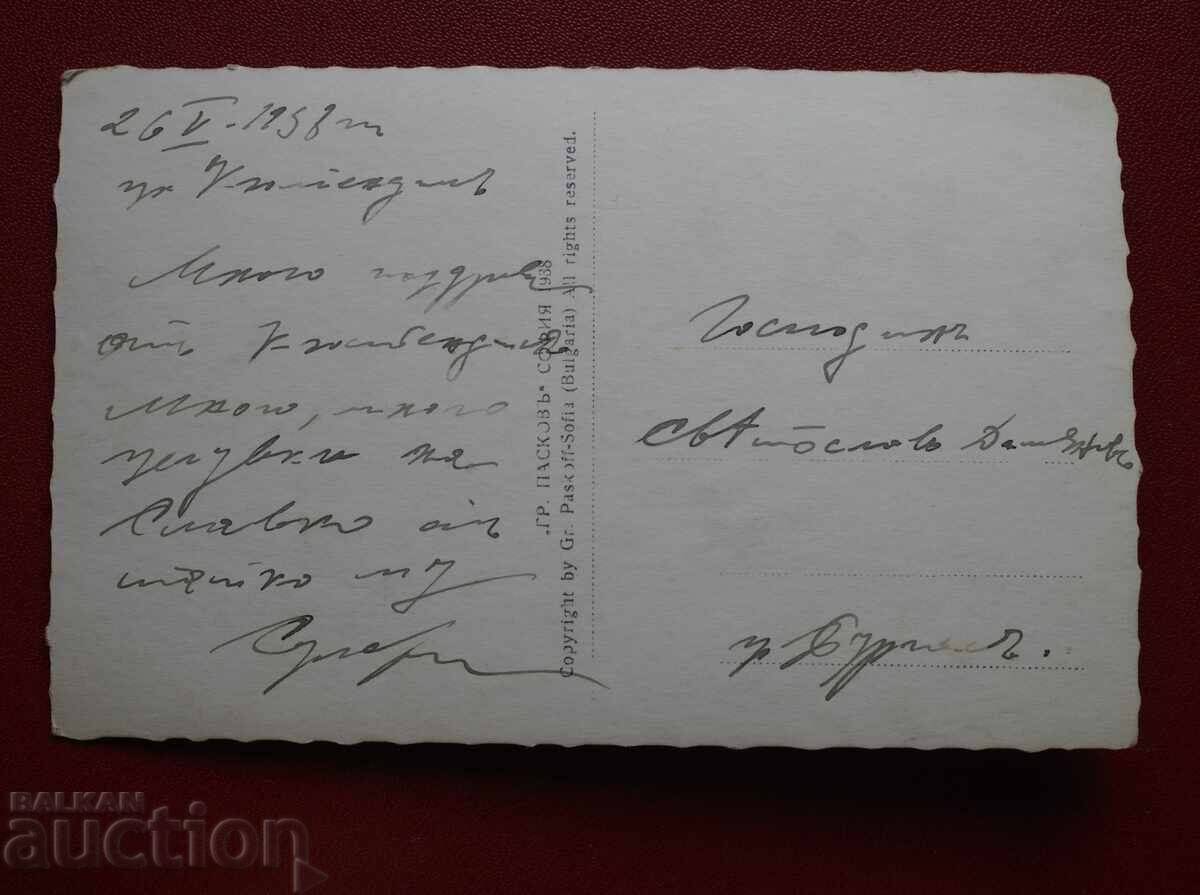 26 V. 1938 г.
гр. Кюстендилъ
Много поздрави
отъ Кюстендилъ
Много, много
целувки на
Славко отъ
татко му
„ГР. ПАСКОВЪ“ СОФИЯ 1938
Copyright by Gr. Paskoff-Sofia (Bulgaria) All rights reserved.
Господинъ
Святославъ Дамяновъ
гр. Бургасъ.
BALKAN
auction